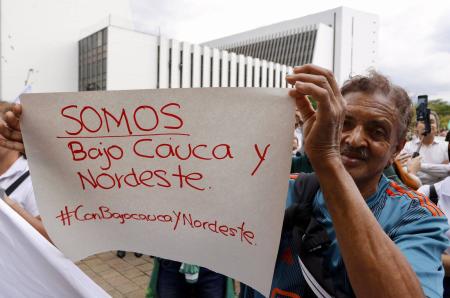 SOMOS
Bajo Cauca y
Nordeste.
#ConBajocaucaYNordeste.